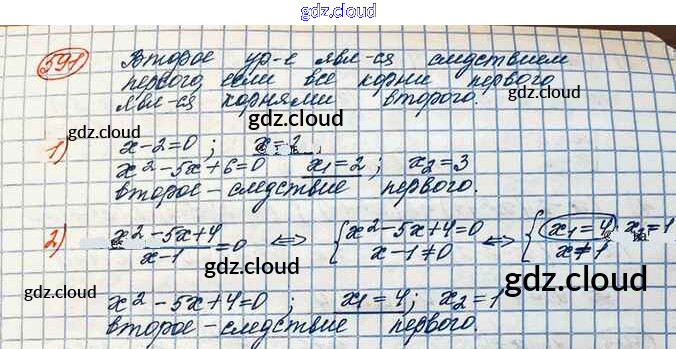 gdz.cloud
591) Второе ур-е явл-ся следствием
первого, если все корни первого
явл-ся корнями второго.
gdz.cloud
gdz.cloud
1) x-2=0 ; x=2
x²-5x+6=0 x₁=2 ; x₂=3
второе-следствие первого.
gdz.cloud
gdz.cloud
gdz.cloud
2) x²-5x+4/x-1 =0 ⇔ {x²-5x+4=0 x-1≠0 ⇔ {x₁=4; x₂=1 x≠1
gdz.cloud
gdz.cloud
gdz.cloud
x²-5x+4=0 ; x₁=4; x₂=1
второе-следствие первого.
gdz.cloud